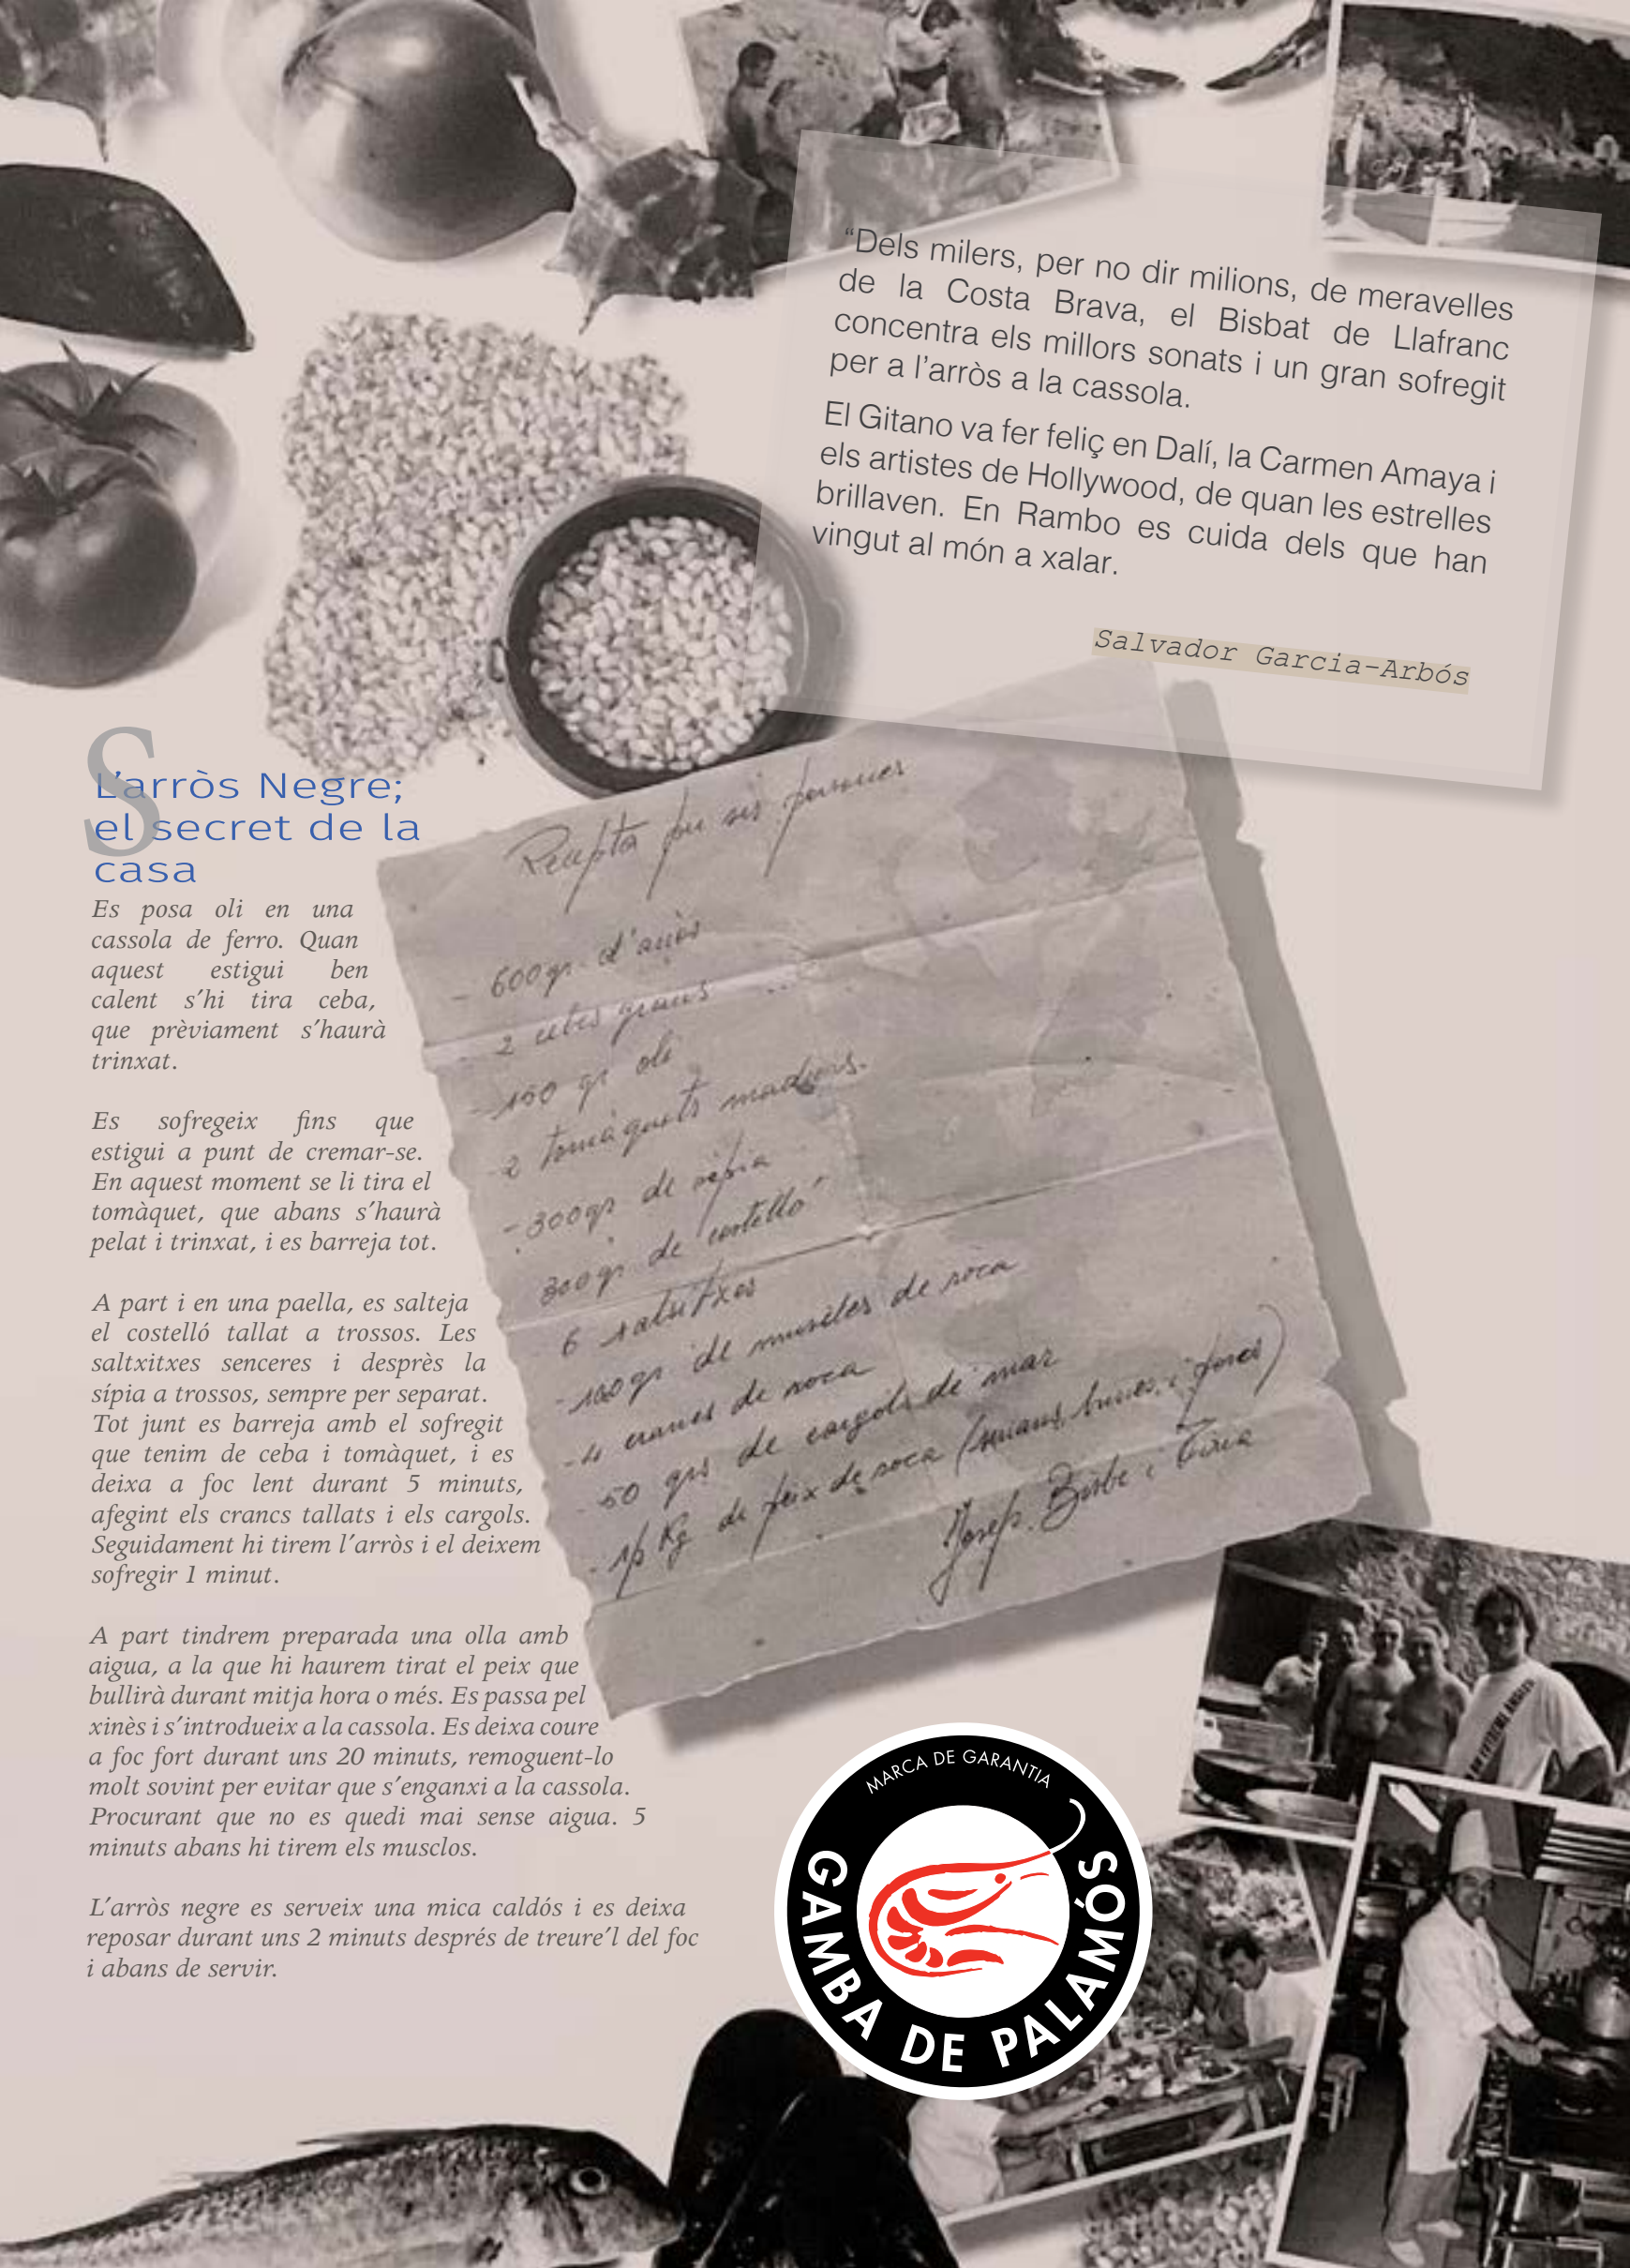 “Dels milers, per no dir milions, de meravelles
de la Costa Brava, el Bisbat de Llafranc
concentra els millors sonats i un gran sofregit
per a l’arròs a la cassola.
El Gitano va fer feliç en Dalí, la Carmen Amaya i
els artistes de Hollywood, de quan les estrelles
brillaven. En Rambo es cuida dels que han
vingut al món a xalar.
Salvador Garcia-Arbós
S
L’arròs Negre;
el secret de la
casa
Es posa oli en una
cassola de ferro. Quan
aquest estigui ben
calent s’hi tira ceba,
que prèviament s’haurà
trinxat.
Es sofregeix fins que
estigui a punt de cremar-se.
En aquest moment se li tira el
tomàquet, que abans s’haurà
pelat i trinxat, i es barreja tot.
A part i en una paella, es salteja
el costelló tallat a trossos. Les
saltxitxes senceres i desprès la
sípia a trossos, sempre per separat.
Tot junt es barreja amb el sofregit
que tenim de ceba i tomàquet, i es
deixa a foc lent durant 5 minuts,
afegint els crancs tallats i els cargols.
Seguidament hi tirem l’arròs i el deixem
sofregir 1 minut.
A part tindrem preparada una olla amb
aigua, a la que hi haurem tirat el peix que
bullirà durant mitja hora o més. Es passa pel
xinès i s’introdueix a la cassola. Es deixa coure
a foc fort durant uns 20 minuts, remoguent-lo
molt sovint per evitar que s’enganxi a la cassola.
Procurant que no es quedi mai sense aigua. 5
minuts abans hi tirem els musclos.
L’arròs negre es serveix una mica caldós i es deixa
reposar durant uns 2 minuts després de treure’l del foc
i abans de servir.
Recepta per sis persones
- 600 gr. d'arròs
- 2 cebes grans
- 150 gr oli
- 2 tomàquets madurs.
- 300 gr de sípia
300 gr de "costelló"
6 salsitxes
- 100 gr de muscles de roca
- 4 crancs de roca
- 50 grs de cargols de mar
- Kg de peix de roca
Josep Bisbe i
MARCA DE GARANTIA
GAMBA DE PALAMÓS